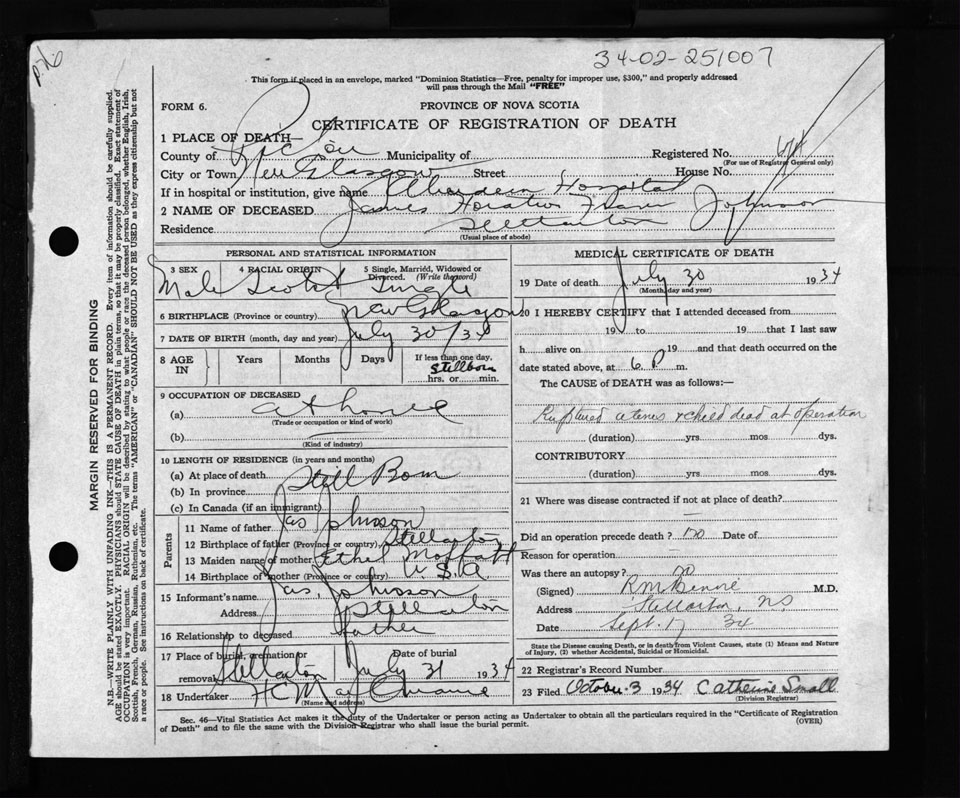 34-02-251007
This form if placed in an envelope, marked "Dominion Statistics—Free, penalty for improper use, $300," and properly addressed
will pass through the Mail "FREE"
FORM 6.
PROVINCE OF NOVA SCOTIA
CERTIFICATE OF REGISTRATION OF DEATH
1 PLACE OF DEATH—
County of Pictou Municipality of Registered No.
(For use of Registrar General only)
City or Town New Glasgow Street House No.
If in hospital or institution, give name Aberdeen Hospital
2 NAME OF DECEASED James Horatio Fraser Johnson
Residence Stellarton
(Usual place of abode)
PERSONAL AND STATISTICAL INFORMATION
3 SEX 4 RACIAL ORIGIN 5 Single, Married, Widowed or
Divorced. (Write the word)
Male Scotch Single
6 BIRTHPLACE (Province or country) New Glasgow
7 DATE OF BIRTH (month, day and year) July 30/34
8 AGE IN Years Months Days If less than one day,
Stillborn
hrs. or min.
9 OCCUPATION OF DECEASED
(a) at home
(Trade or occupation or kind of work)
(b)
(Kind of industry)
10 LENGTH OF RESIDENCE (in years and months)
(a) At place of death Still Born
(b) In province
(c) In Canada (if an immigrant)
Parents
11 Name of father Jas Johnson
12 Birthplace of father (Province or country) Stellarton
13 Maiden name of mother Ethel Moffatt
14 Birthplace of mother (Province or country) U.S.A
15 Informant's name Jas. Johnson
Address Stellarton
16 Relationship to deceased father
17 Place of burial, cremation or removal Date of burial
Stellarton July 31 1934
18 Undertaker
(Name and address)
MEDICAL CERTIFICATE OF DEATH
19 Date of death July 30 1934
(Month, day and year)
20 I HEREBY CERTIFY that I attended deceased from
19 to 19 that I last saw
h alive on 19 and that death occurred on the
date stated above, at 6 P m.
The CAUSE of DEATH was as follows:—
Ruptured uterus & child dead at operation
(duration) yrs. mos. dys.
CONTRIBUTORY
(duration) yrs. mos. dys.
21 Where was disease contracted if not at place of death?
Did an operation precede death? no Date of
Reason for operation
Was there an autopsy? no
(Signed) M.D.
Address Stellarton, NS
Date Sept. 17 34
State the Disease causing Death, or in death from Violent Causes, state (1) Means and Nature
of Injury, (2) whether Accidental, Suicidal or Homicidal.
22 Registrar's Record Number
23 Filed October 3 1934 Catherine Small
(Division Registrar)
Sec. 46—Vital Statistics Act makes it the duty of the Undertaker or person acting as Undertaker to obtain all the particulars required in the "Certificate of Registration
of Death" and to file the same with the Division Registrar who shall issue the burial permit.
(OVER)
MARGIN RESERVED FOR BINDING
N.B.—WRITE PLAINLY WITH UNFADING INK—THIS IS A PERMANENT RECORD. Every item of information should be carefully supplied.
AGE should be stated EXACTLY. PHYSICIANS should STATE CAUSE OF DEATH in plain terms, so that it may be properly classified. Exact statement of
OCCUPATION is very important. RACIAL ORIGIN will be described by stating to what people or race the deceased person belonged, whether English, Irish,
Scottish, French, German, Russian, Ruthenian, etc. The terms "AMERICAN" or "CANADIAN" SHOULD NOT BE USED as they express citizenship but not
a race or people. See instructions on back of certificate.